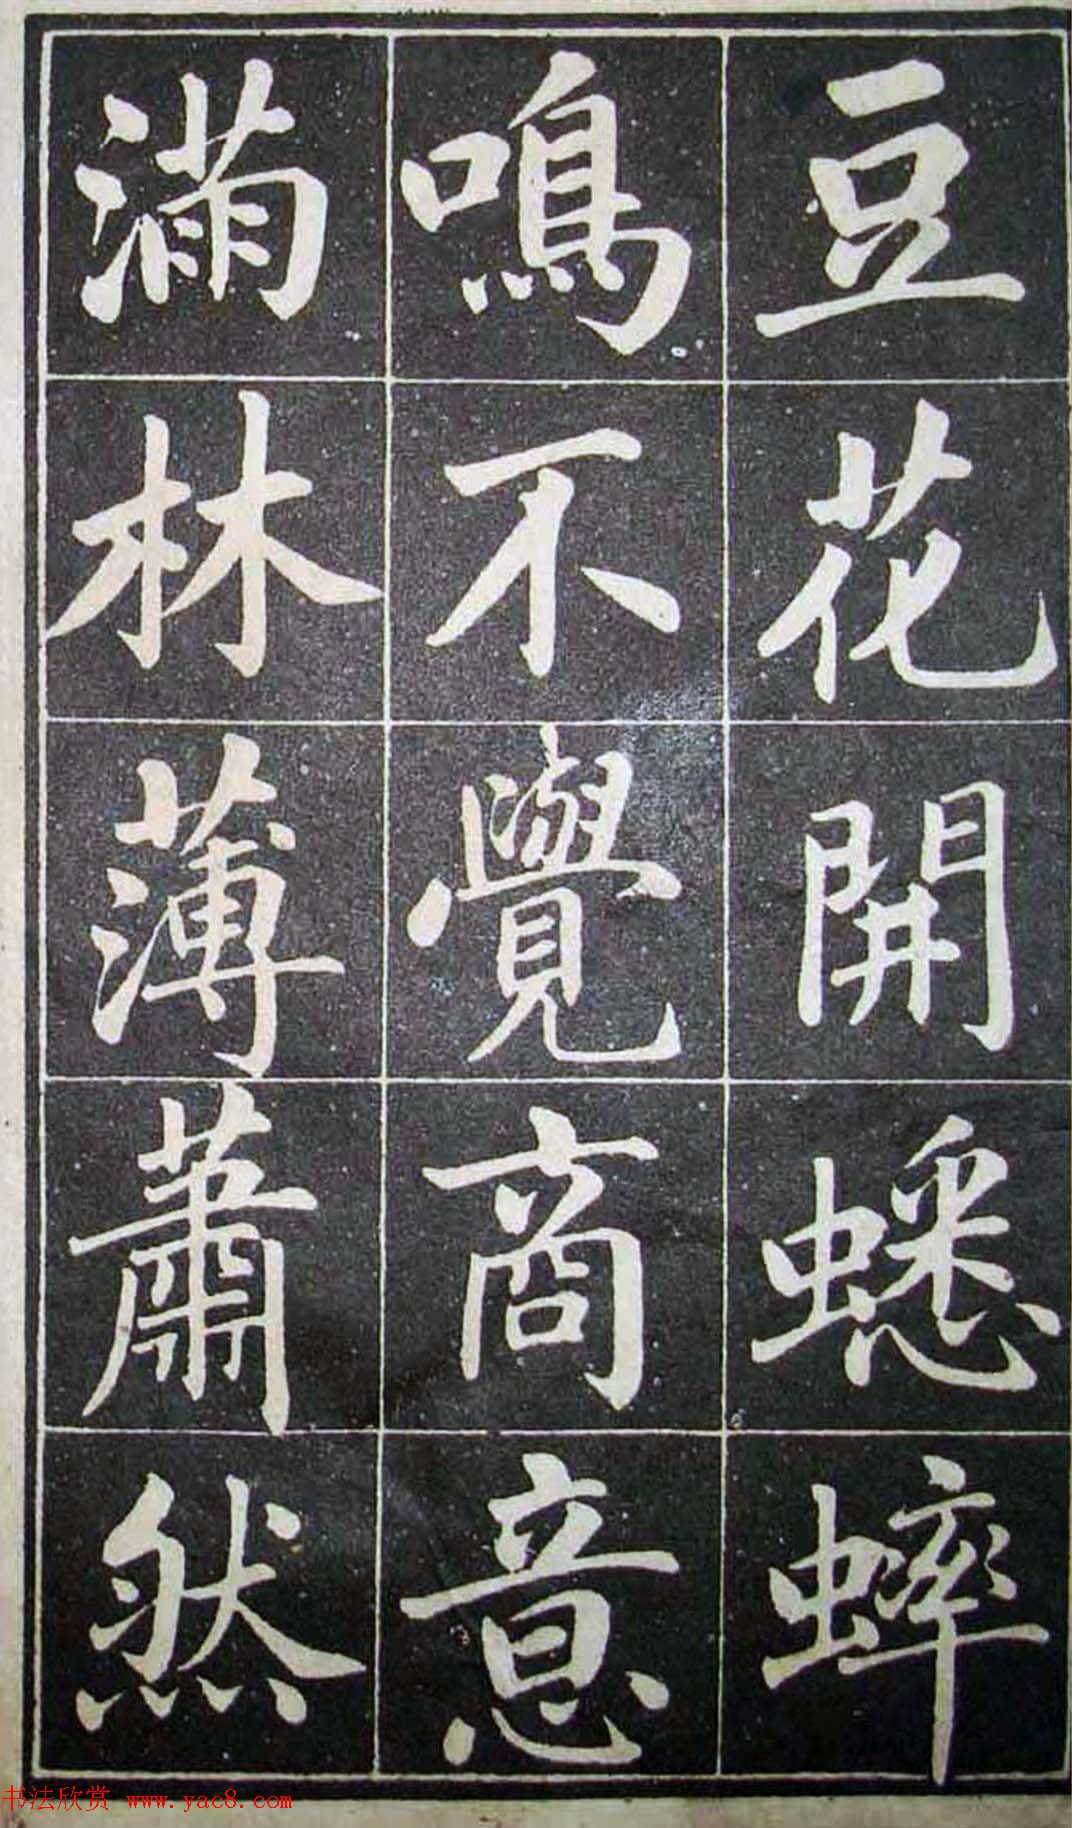 豆花開蟋蟀
鳴不覺商意
滿林薄蕭然
书法欣赏 www.yac8.com